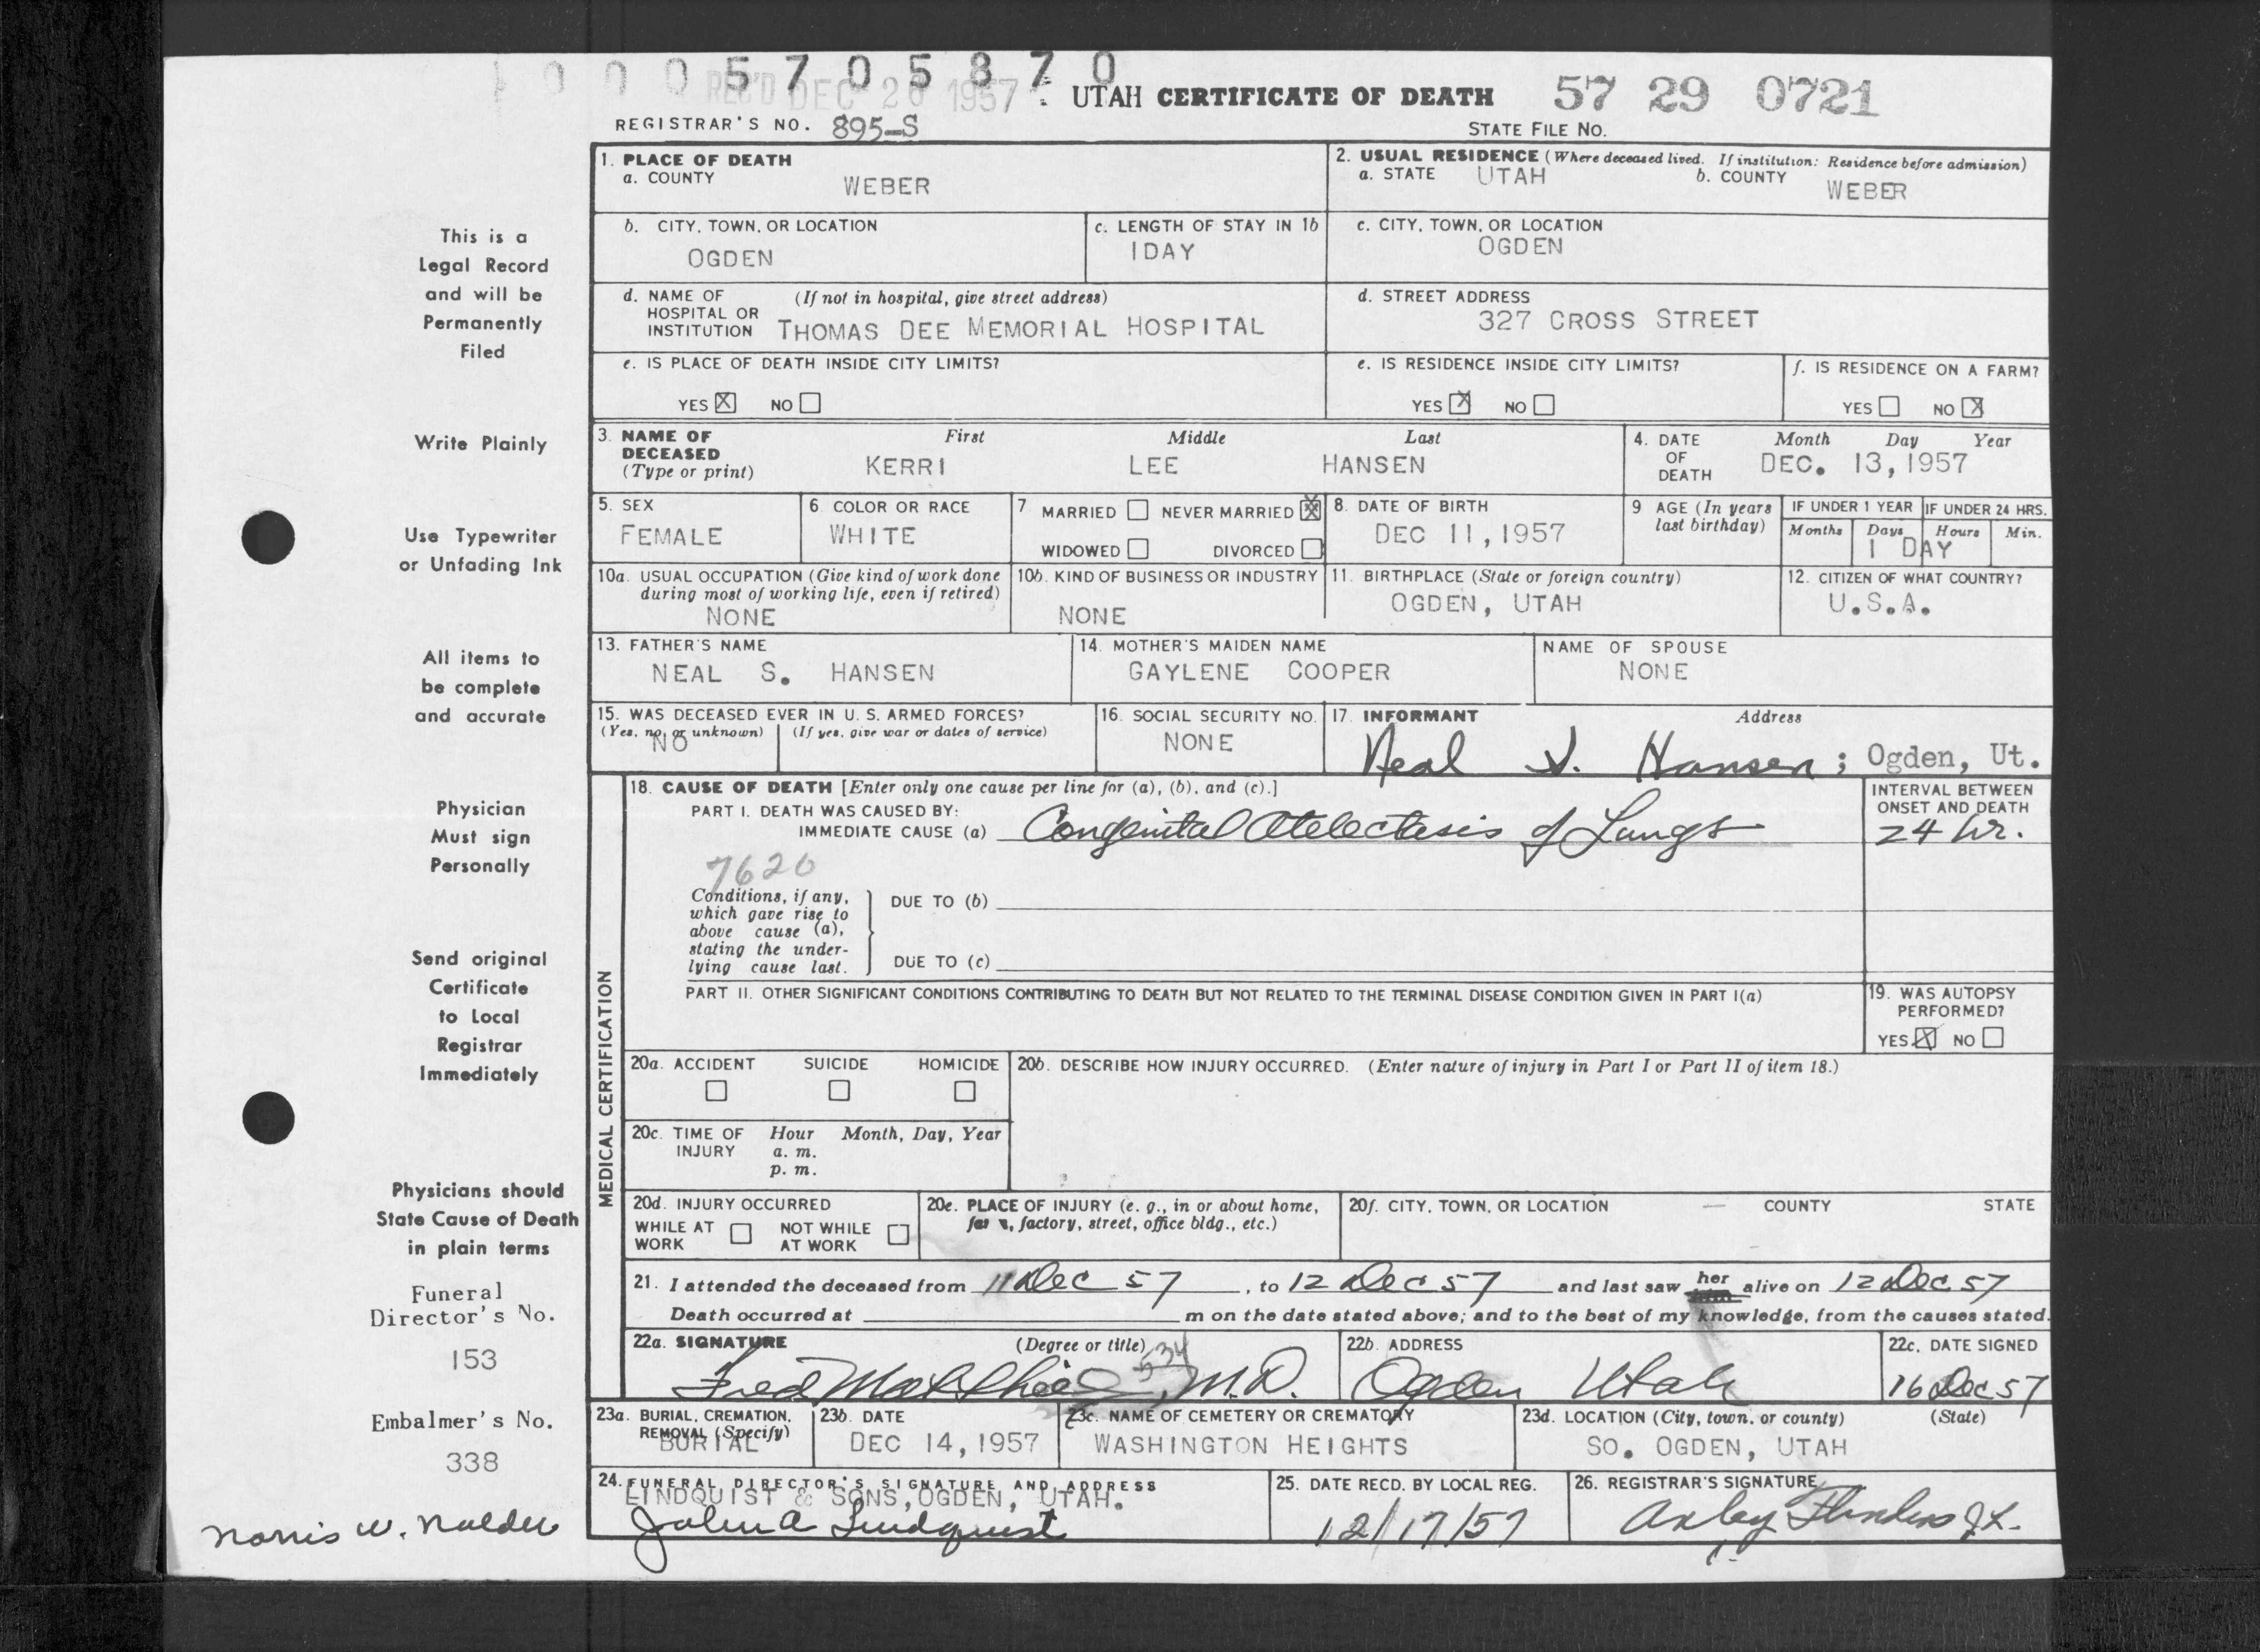 1 0 0 0 5 7 0 5 8 7 0
REC'D DEC 20 1957
UTAH CERTIFICATE OF DEATH 57 29 0721
REGISTRAR'S NO. 895-S STATE FILE NO.
1. PLACE OF DEATH
a. COUNTY WEBER
2. USUAL RESIDENCE (Where deceased lived. If institution: Residence before admission)
a. STATE UTAH b. COUNTY WEBER
b. CITY, TOWN, OR LOCATION
OGDEN
c. LENGTH OF STAY IN 1b
1 DAY
c. CITY, TOWN, OR LOCATION
OGDEN
d. NAME OF (If not in hospital, give street address)
HOSPITAL OR
INSTITUTION THOMAS DEE MEMORIAL HOSPITAL
d. STREET ADDRESS
327 CROSS STREET
e. IS PLACE OF DEATH INSIDE CITY LIMITS?
YES X NO
e. IS RESIDENCE INSIDE CITY LIMITS?
YES X NO
f. IS RESIDENCE ON A FARM?
YES NO X
3. NAME OF First Middle Last
DECEASED
(Type or print) KERRI LEE HANSEN
4. DATE Month Day Year
OF
DEATH DEC. 13, 1957
5. SEX
FEMALE
6. COLOR OR RACE
WHITE
7 MARRIED NEVER MARRIED X
WIDOWED DIVORCED
8. DATE OF BIRTH
DEC 11, 1957
9 AGE (In years
last birthday)
IF UNDER 1 YEAR IF UNDER 24 HRS.
Months Days Hours Min.
1 DAY
10a. USUAL OCCUPATION (Give kind of work done
during most of working life, even if retired)
NONE
10b. KIND OF BUSINESS OR INDUSTRY
NONE
11. BIRTHPLACE (State or foreign country)
OGDEN, UTAH
12. CITIZEN OF WHAT COUNTRY?
U.S.A.
13. FATHER'S NAME
NEAL S. HANSEN
14. MOTHER'S MAIDEN NAME
GAYLENE COOPER
NAME OF SPOUSE
NONE
15. WAS DECEASED EVER IN U. S. ARMED FORCES?
(Yes, no, or unknown) (If yes, give war or dates of service)
NO
16. SOCIAL SECURITY NO.
NONE
17. INFORMANT Address
Neal S. Hansen; Ogden, Ut.
MEDICAL CERTIFICATION
18. CAUSE OF DEATH [Enter only one cause per line for (a), (b), and (c).]
PART I. DEATH WAS CAUSED BY:
IMMEDIATE CAUSE (a) Congenital Atelectasis of Lungs
INTERVAL BETWEEN
ONSET AND DEATH
24 hr.
7620
Conditions, if any,
which gave rise to
above cause (a),
stating the under-
lying cause last.
DUE TO (b)
DUE TO (c)
PART II. OTHER SIGNIFICANT CONDITIONS CONTRIBUTING TO DEATH BUT NOT RELATED TO THE TERMINAL DISEASE CONDITION GIVEN IN PART I(a)
19. WAS AUTOPSY
PERFORMED?
YES X NO
20a. ACCIDENT SUICIDE HOMICIDE
20b. DESCRIBE HOW INJURY OCCURRED. (Enter nature of injury in Part I or Part II of item 18.)
20c. TIME OF Hour Month, Day, Year
INJURY a. m.
p. m.
20d. INJURY OCCURRED
WHILE AT NOT WHILE
WORK AT WORK
20e. PLACE OF INJURY (e. g., in or about home,
farm, factory, street, office bldg., etc.)
20f. CITY, TOWN, OR LOCATION COUNTY STATE
21. I attended the deceased from 11 Dec 57, to 12 Dec 57 and last saw her him alive on 12 Dec 57
Death occurred at m on the date stated above; and to the best of my knowledge, from the causes stated.
22a. SIGNATURE (Degree or title) 534
Fred Matthies, M.D.
22b. ADDRESS
Ogden Utah
22c. DATE SIGNED
16 Dec 57
23a. BURIAL, CREMATION,
REMOVAL (Specify)
BURIAL
23b. DATE
DEC 14, 1957
23c. NAME OF CEMETERY OR CREMATORY
WASHINGTON HEIGHTS
23d. LOCATION (City, town, or county) (State)
SO. OGDEN, UTAH
24. FUNERAL DIRECTOR'S SIGNATURE AND ADDRESS
LINDQUIST & SONS, OGDEN, UTAH.
John A Lindquist
25. DATE RECD. BY LOCAL REG.
12/17/57
26. REGISTRAR'S SIGNATURE
This is a
Legal Record
and will be
Permanently
Filed
Write Plainly
Use Typewriter
or Unfading Ink
All items to
be complete
and accurate
Physician
Must sign
Personally
Send original
Certificate
to Local
Registrar
Immediately
Physicians should
State Cause of Death
in plain terms
Funeral
Director's No.
153
Embalmer's No.
338
Norris W. Nalder